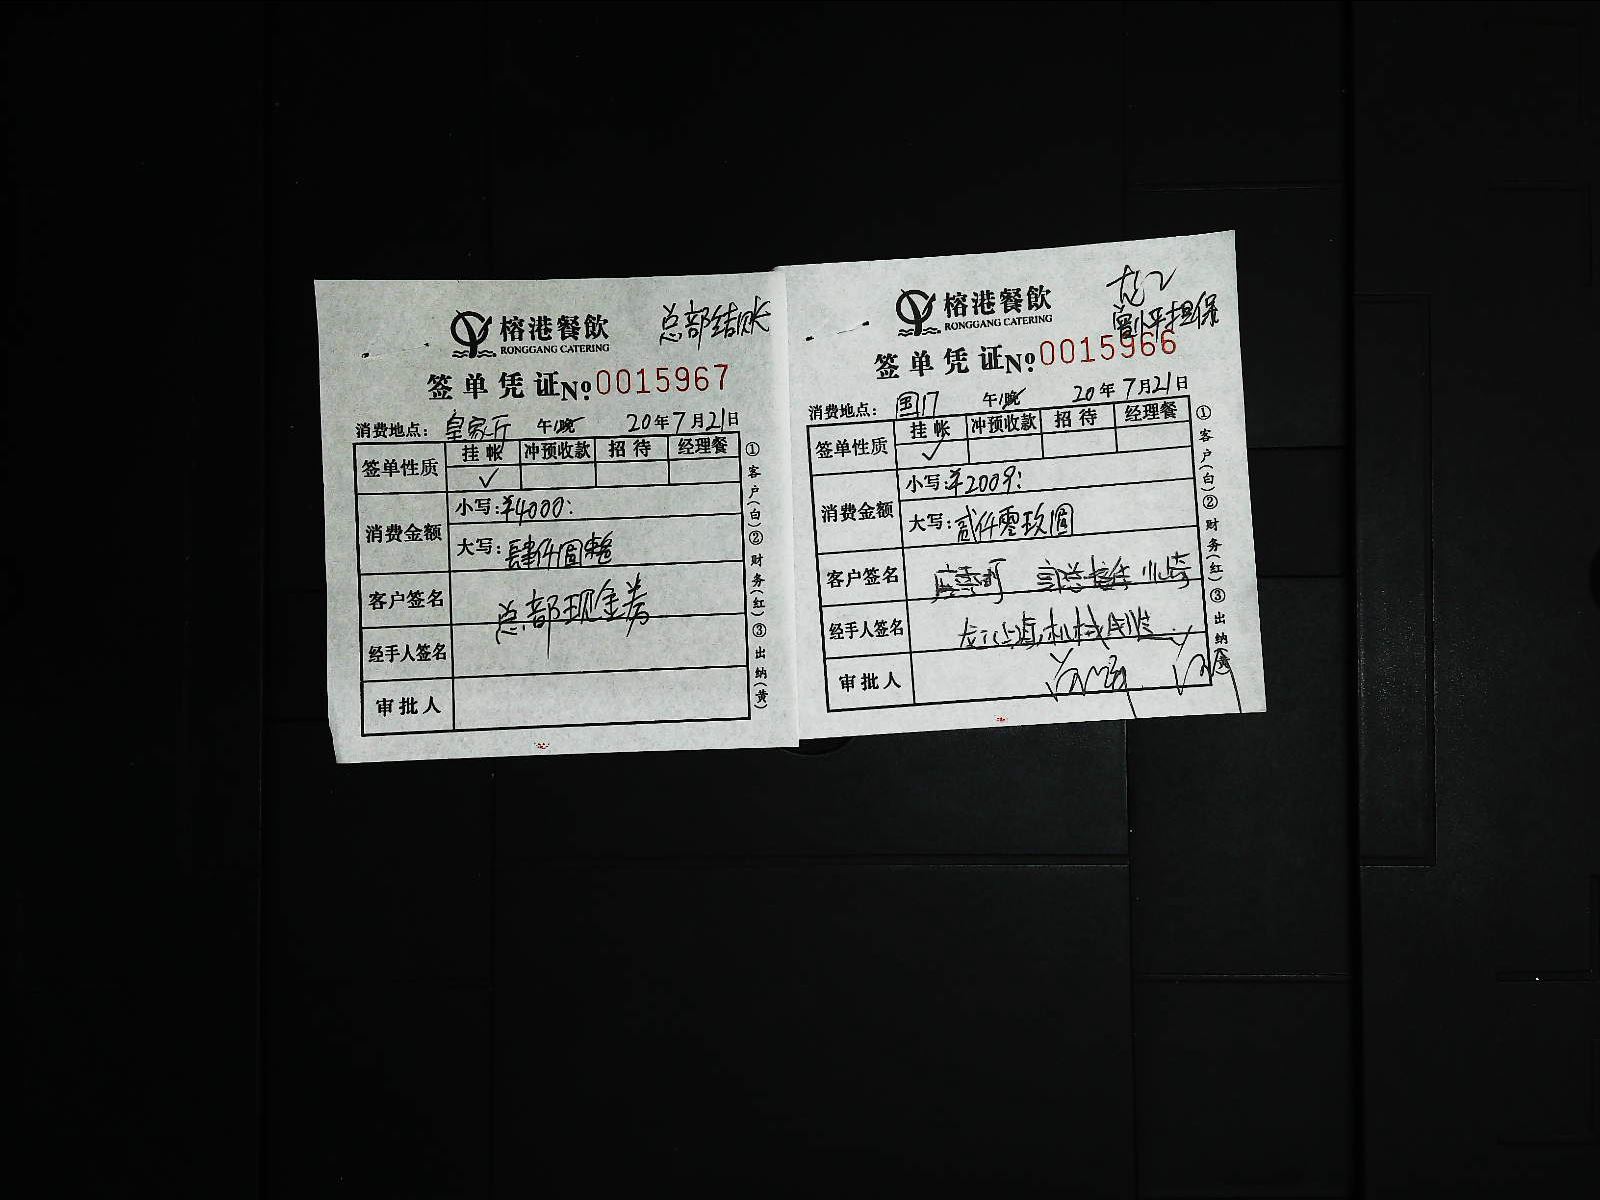 总部结账
榕港餐飲
RONGGANG CATERING
签单凭证№0015967
消费地点：皇家厅 午/晚 20年7月21日
签单性质 挂帐 冲预收款 招待 经理餐
✓
消费金额 小写：¥4000：
大写：肆仟圆整
客户签名 总部现金券
经手人签名
审批人
①客户(白)②财务(红)③出纳(黄)
曾小平担保
榕港餐飲
RONGGANG CATERING
签单凭证№0015966
消费地点：国17 午/晚 20年7月21日
签单性质 挂帐 冲预收款 招待 经理餐
✓
消费金额 小写：¥2009：
大写：贰仟零玖圆
客户签名
经手人签名
审批人
①客户(白)②财务(红)③出纳(黄)